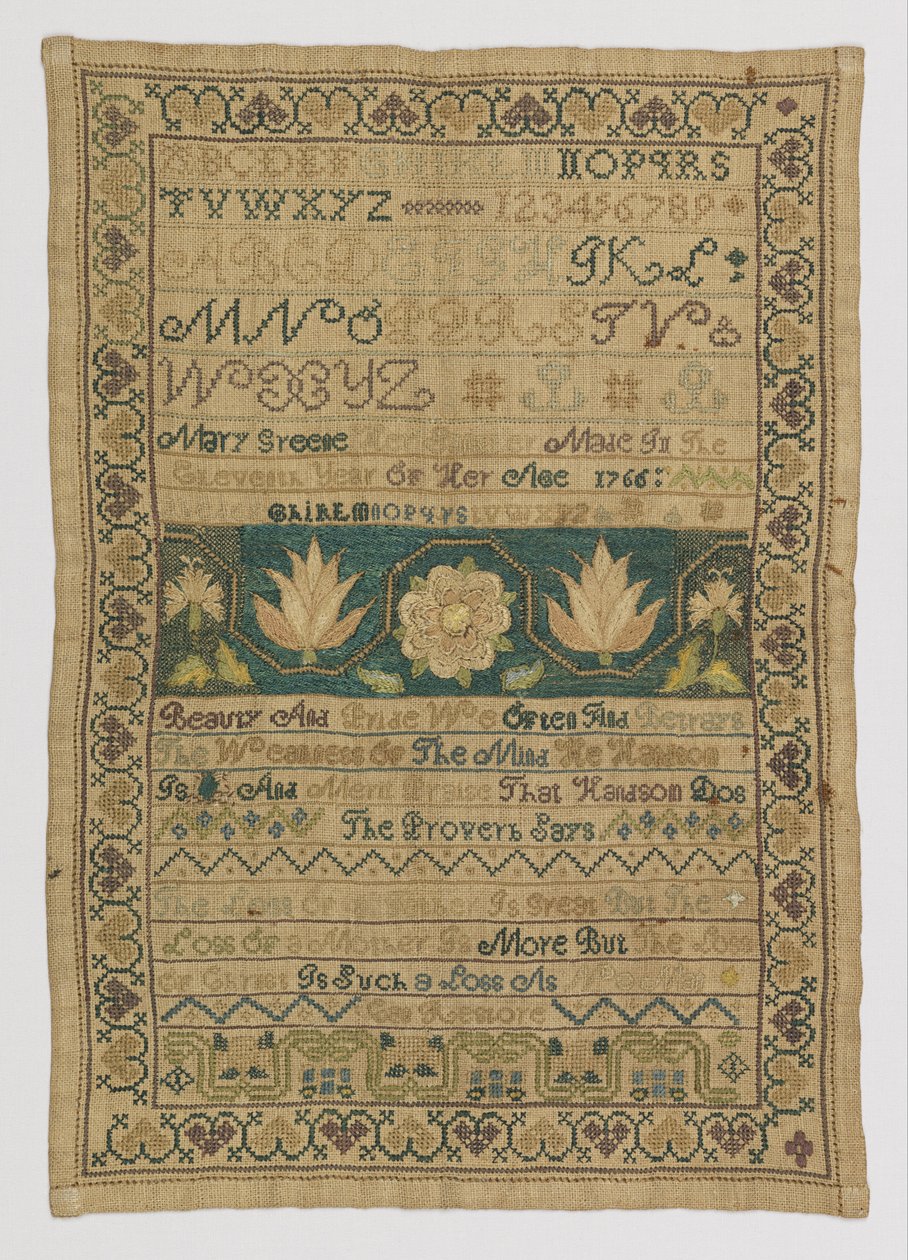 ABCDEF GHIKLM NOPQRS
TVWXYZ 123456789
ABCD EFGH IKL
MNO PQRS TV
WXYZ
Mary Greene Her Sampler Made In The
Eleventh Year Of Her Age 1766
GhIKLMNOPQRS TVWXYZ
Beauty And Pride We Often Find Betrays
The Weakness Of The Mind He Handsom
Is And Merit Praise That Handsom Dos
The Proverb Says
The Loss Of a Father Is Great But The
Loss Of a Mother Is More But The Loss
Of Christ Is Such a Loss As
Can Restore